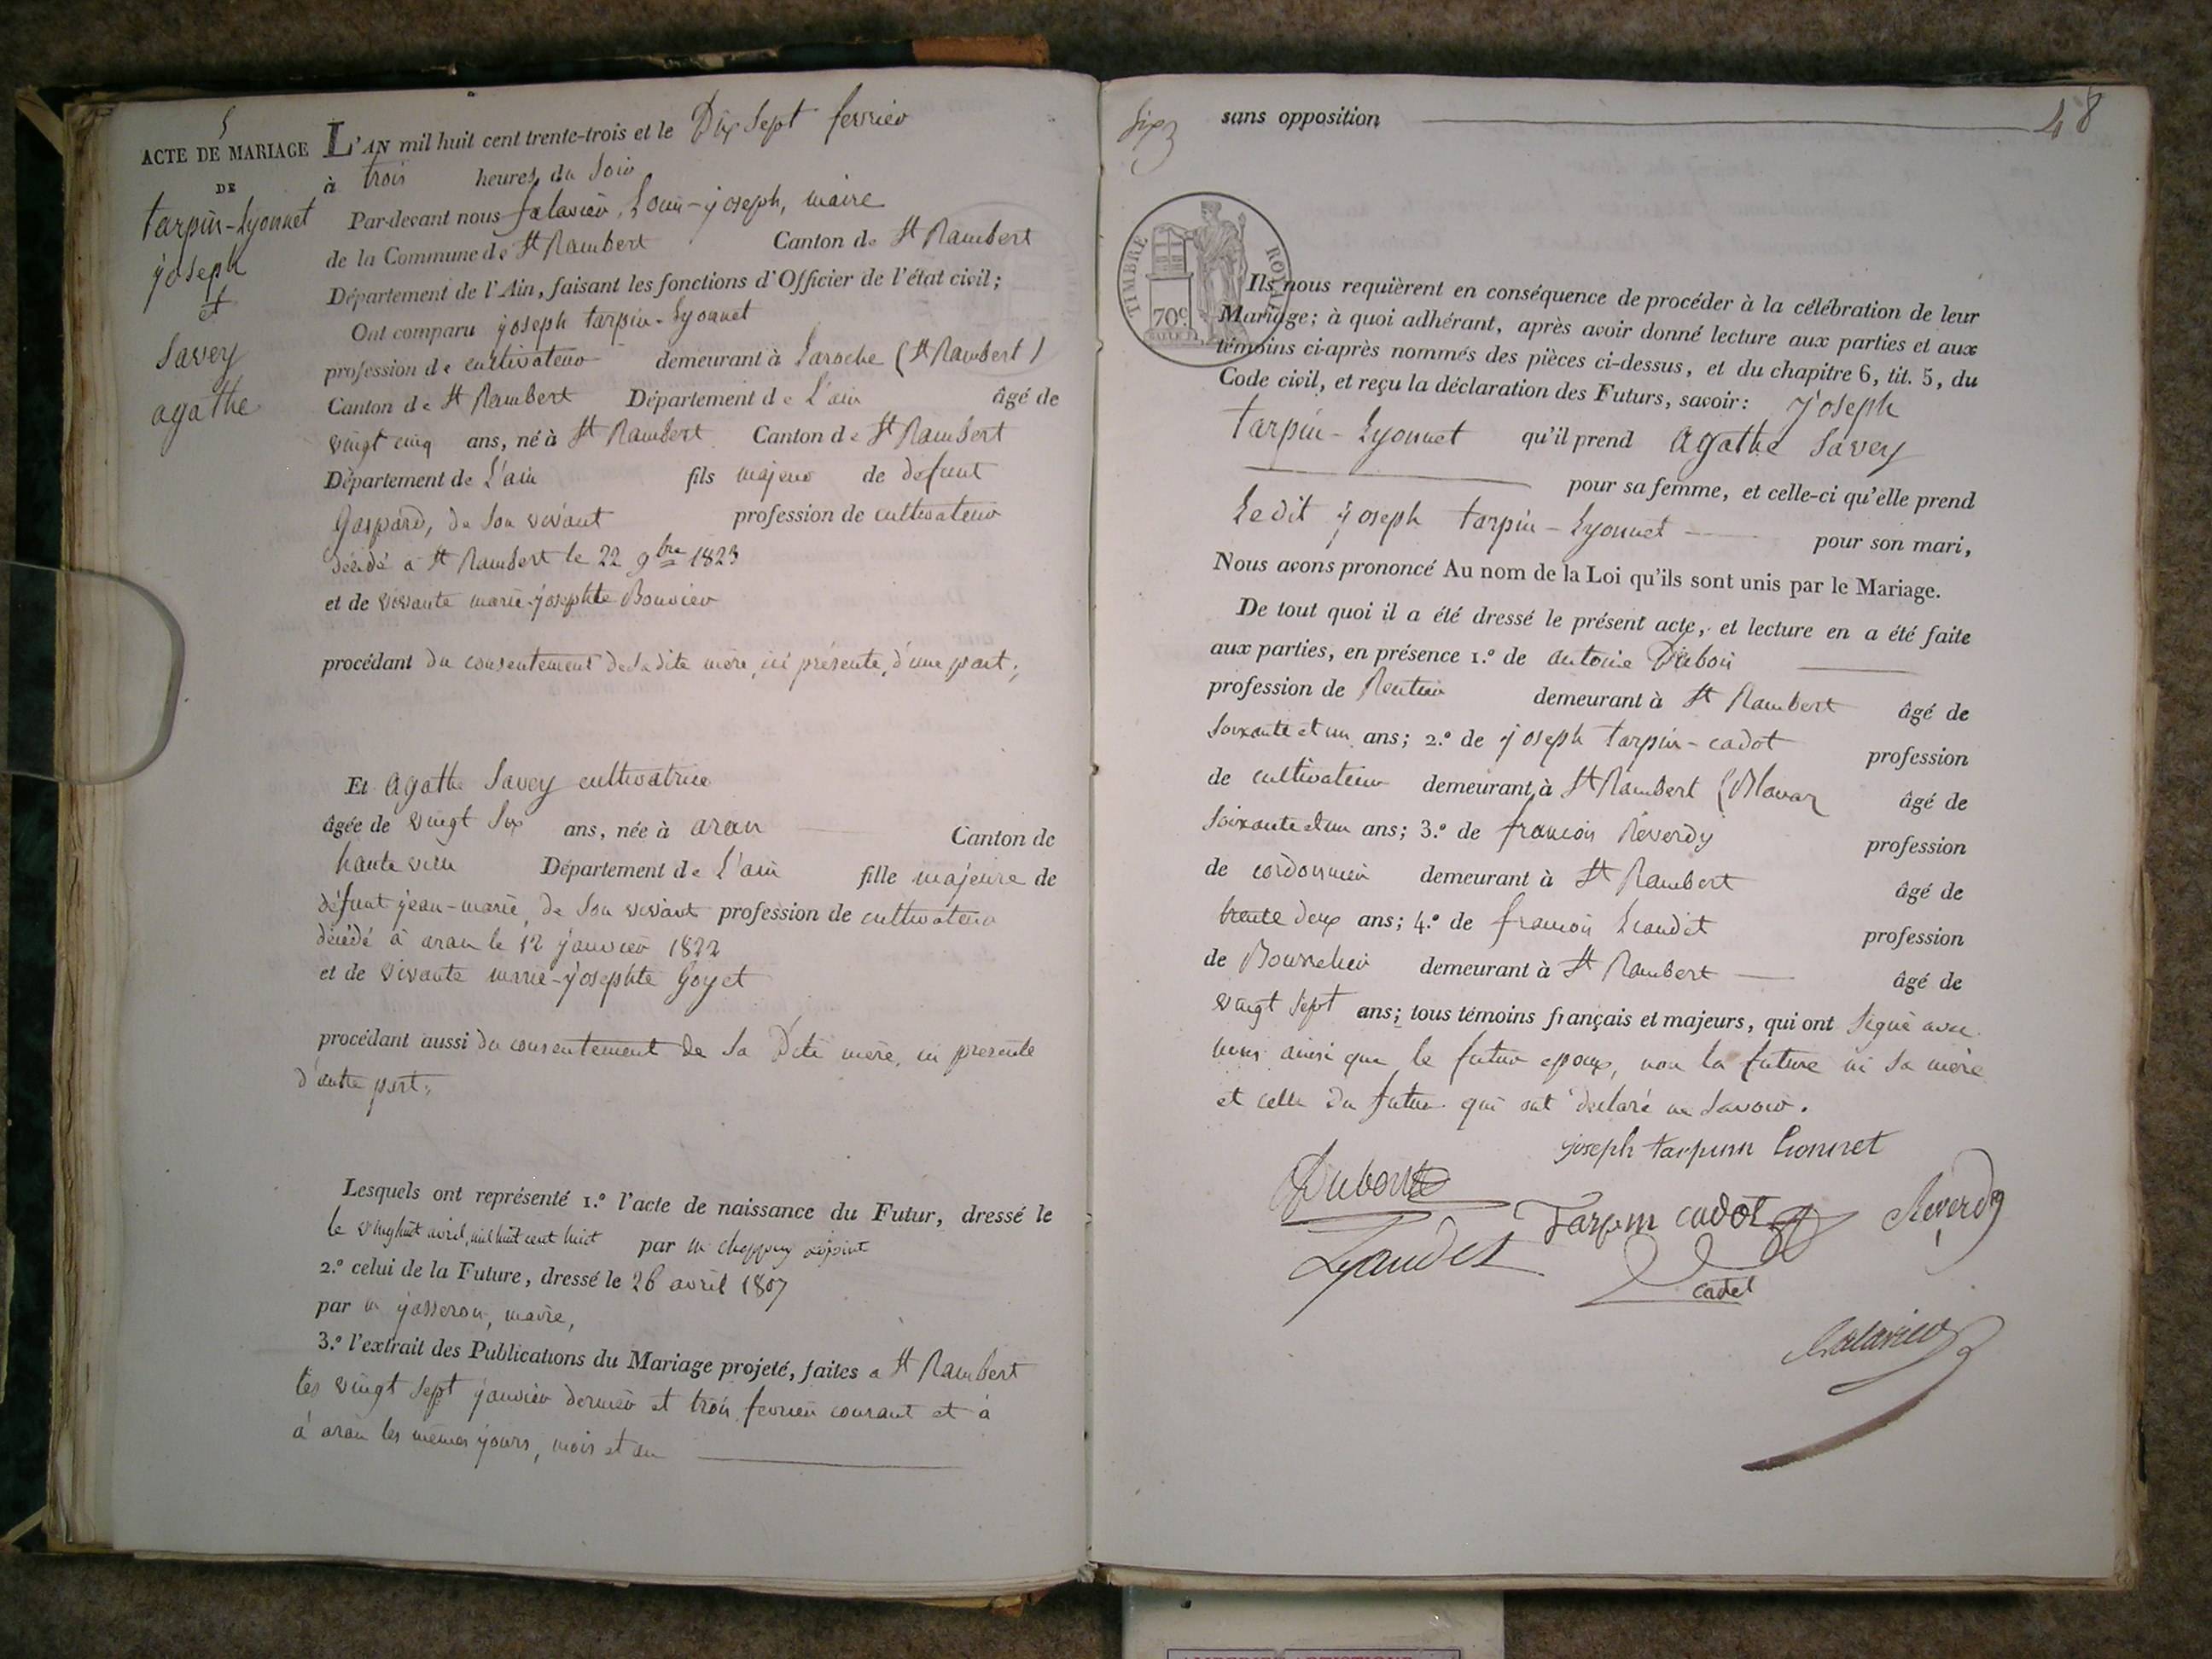 5
ACTE DE MARIAGE
DE
tarpin-Lyonnet
joseph
et
Savey
agathe
L'AN mil huit cent trente-trois et le Dix Sept fevrier
à trois heures du Soir
Par-devant nous falavier, Louis-joseph, maire
de la Commune de St Rambert Canton de St Rambert
Département de l'Ain, faisant les fonctions d'Officier de l'état civil;
Ont comparu joseph tarpin-Lyonnet
profession de cultivateur demeurant à Laroche (St Rambert)
Canton de St Rambert Département de L'ain âgé de
vingt cinq ans, né à St Rambert Canton de St Rambert
Département de L'ain fils majeur de defunt
Gaspard, de Son vivant profession de cultivateur
décédé a St Rambert le 22 9bre 1823
et de vivante marie-josephte Bouvier
procédant du consentement de Sadite mère, ici présente, d'une part;
Et Agathe Savey cultivatrice
âgée de vingt Six ans, née à aran Canton de
haute ville Département de L'ain fille majeure de
défunt jean-marie, de Son vivant profession de cultivateur
décédé à aran le 12 janvier 1822
et de vivante marie-josephte Goyet
procédant aussi du consentement de Sa Dite mère, ici presente
d'autre part;
Lesquels ont représenté 1.º l'acte de naissance du Futur, dressé le
le vinghuit avril, mil huit cent huit par m adjoint
2.º celui de la Future, dressé le 26 avril 1807
par m josseron, maire,
3.º l'extrait des Publications du Mariage projeté, faites a St Rambert
les vingt Sept janvier dernier et trois fevrier courant et à
à aran les mêmes jours, mois et an
sans opposition
48
TIMBRE ROYAL
70c
Ils nous requièrent en conséquence de procéder à la célébration de leur
Mariage; à quoi adhérant, après avoir donné lecture aux parties et aux
témoins ci-après nommés des pièces ci-dessus, et du chapitre 6, tit. 5, du
Code civil, et reçu la déclaration des Futurs, savoir: joseph
tarpin-Lyonnet qu'il prend Agathe Savey
pour sa femme, et celle-ci qu'elle prend
Ledit joseph tarpin-Lyonnet pour son mari,
Nous avons prononcé Au nom de la Loi qu'ils sont unis par le Mariage.
De tout quoi il a été dressé le présent acte, et lecture en a été faite
aux parties, en présence 1.º de antoine Dubois
profession de Rentier demeurant à St Rambert âgé de
Soixante et un ans; 2.º de joseph tarpin-cadot profession
de cultivateur demeurant à St Rambert âgé de
Soixante et un ans; 3.º de francois Reverdy profession
de cordonnier demeurant à St Rambert âgé de
trente deux ans; 4.º de francois Liaudet profession
de Bourrelier demeurant à St Rambert âgé de
vingt Sept ans; tous témoins français et majeurs, qui ont Signé avec
nous ainsi que le futur epoux, non la future ni Sa mère
et celle du futur qui ont declaré ne Savoir.
joseph tarpinn Lionnet
Dubois
Tarpin cadot
Reverdy
Lyaudet
cadet
falavier